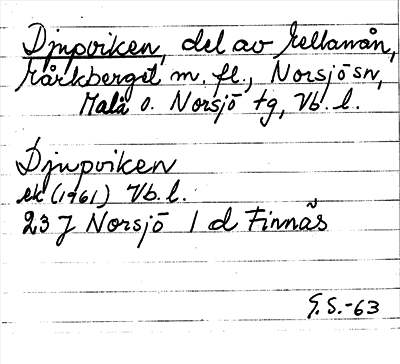 Djupviken, del av Mellanån,
Mårkberget m. fl., Norsjö sn,
Malå o. Norsjö tg, Vb. l.
Djupviken
ek (1961) Vb. l.
23 J Norsjö 1 d Finnäs
G. S. -63